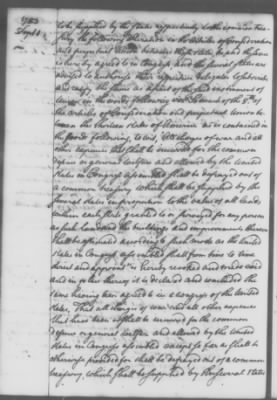 1783
to be supplied by the States respectively to the common trea-
sury the following alteration in the Articles of Confederation
and perpetual Union between these States, be and the same
is hereby agreed to in Congress and the several States are
advised to authorize their respective delegates to subscribe
and ratify the same as a part of the said instrument of
Union in the words following viz. So much of the 8th of
the Articles of Confederation and perpetual Union be-
tween the thirteen States of America as is contained in
the words following to wit "All charges of war and all
other expences that shall be incurred for the common
defence or general welfare and allowed by the United
States in Congress assembled shall be defrayed out of
a common treasury which shall be supplied by the
several States in proportion to the value of all land
within each State granted to or surveyed for any person
as such land and the buildings and improvements thereon
shall be estimated according to such mode as the United
States in Congress assembled shall from time to time
direct and appoint" is hereby revoked and made void
and in place thereof it is declared and concluded the
same having been agreed to in a Congress of the United
States, That all charges of war and all other expences
that have been or shall be incurred for the common
defence or general welfare and allowed by the United
States in Congress assembled except so far as shall be
otherwise provided for shall be defrayed out of a common
treasury, which shall be supplied by the several States